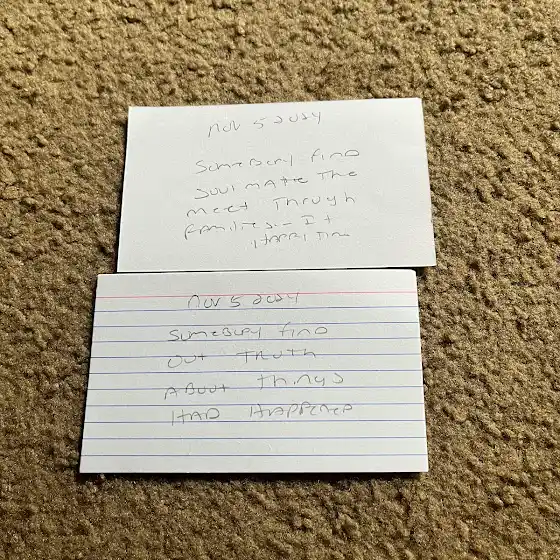 Nov 5 2024
Somebody find
soulmate the
meet Through
families - It
Happy Time
Nov 5 2024
Somebody find
out Truth
About things
HAD HAPPENED